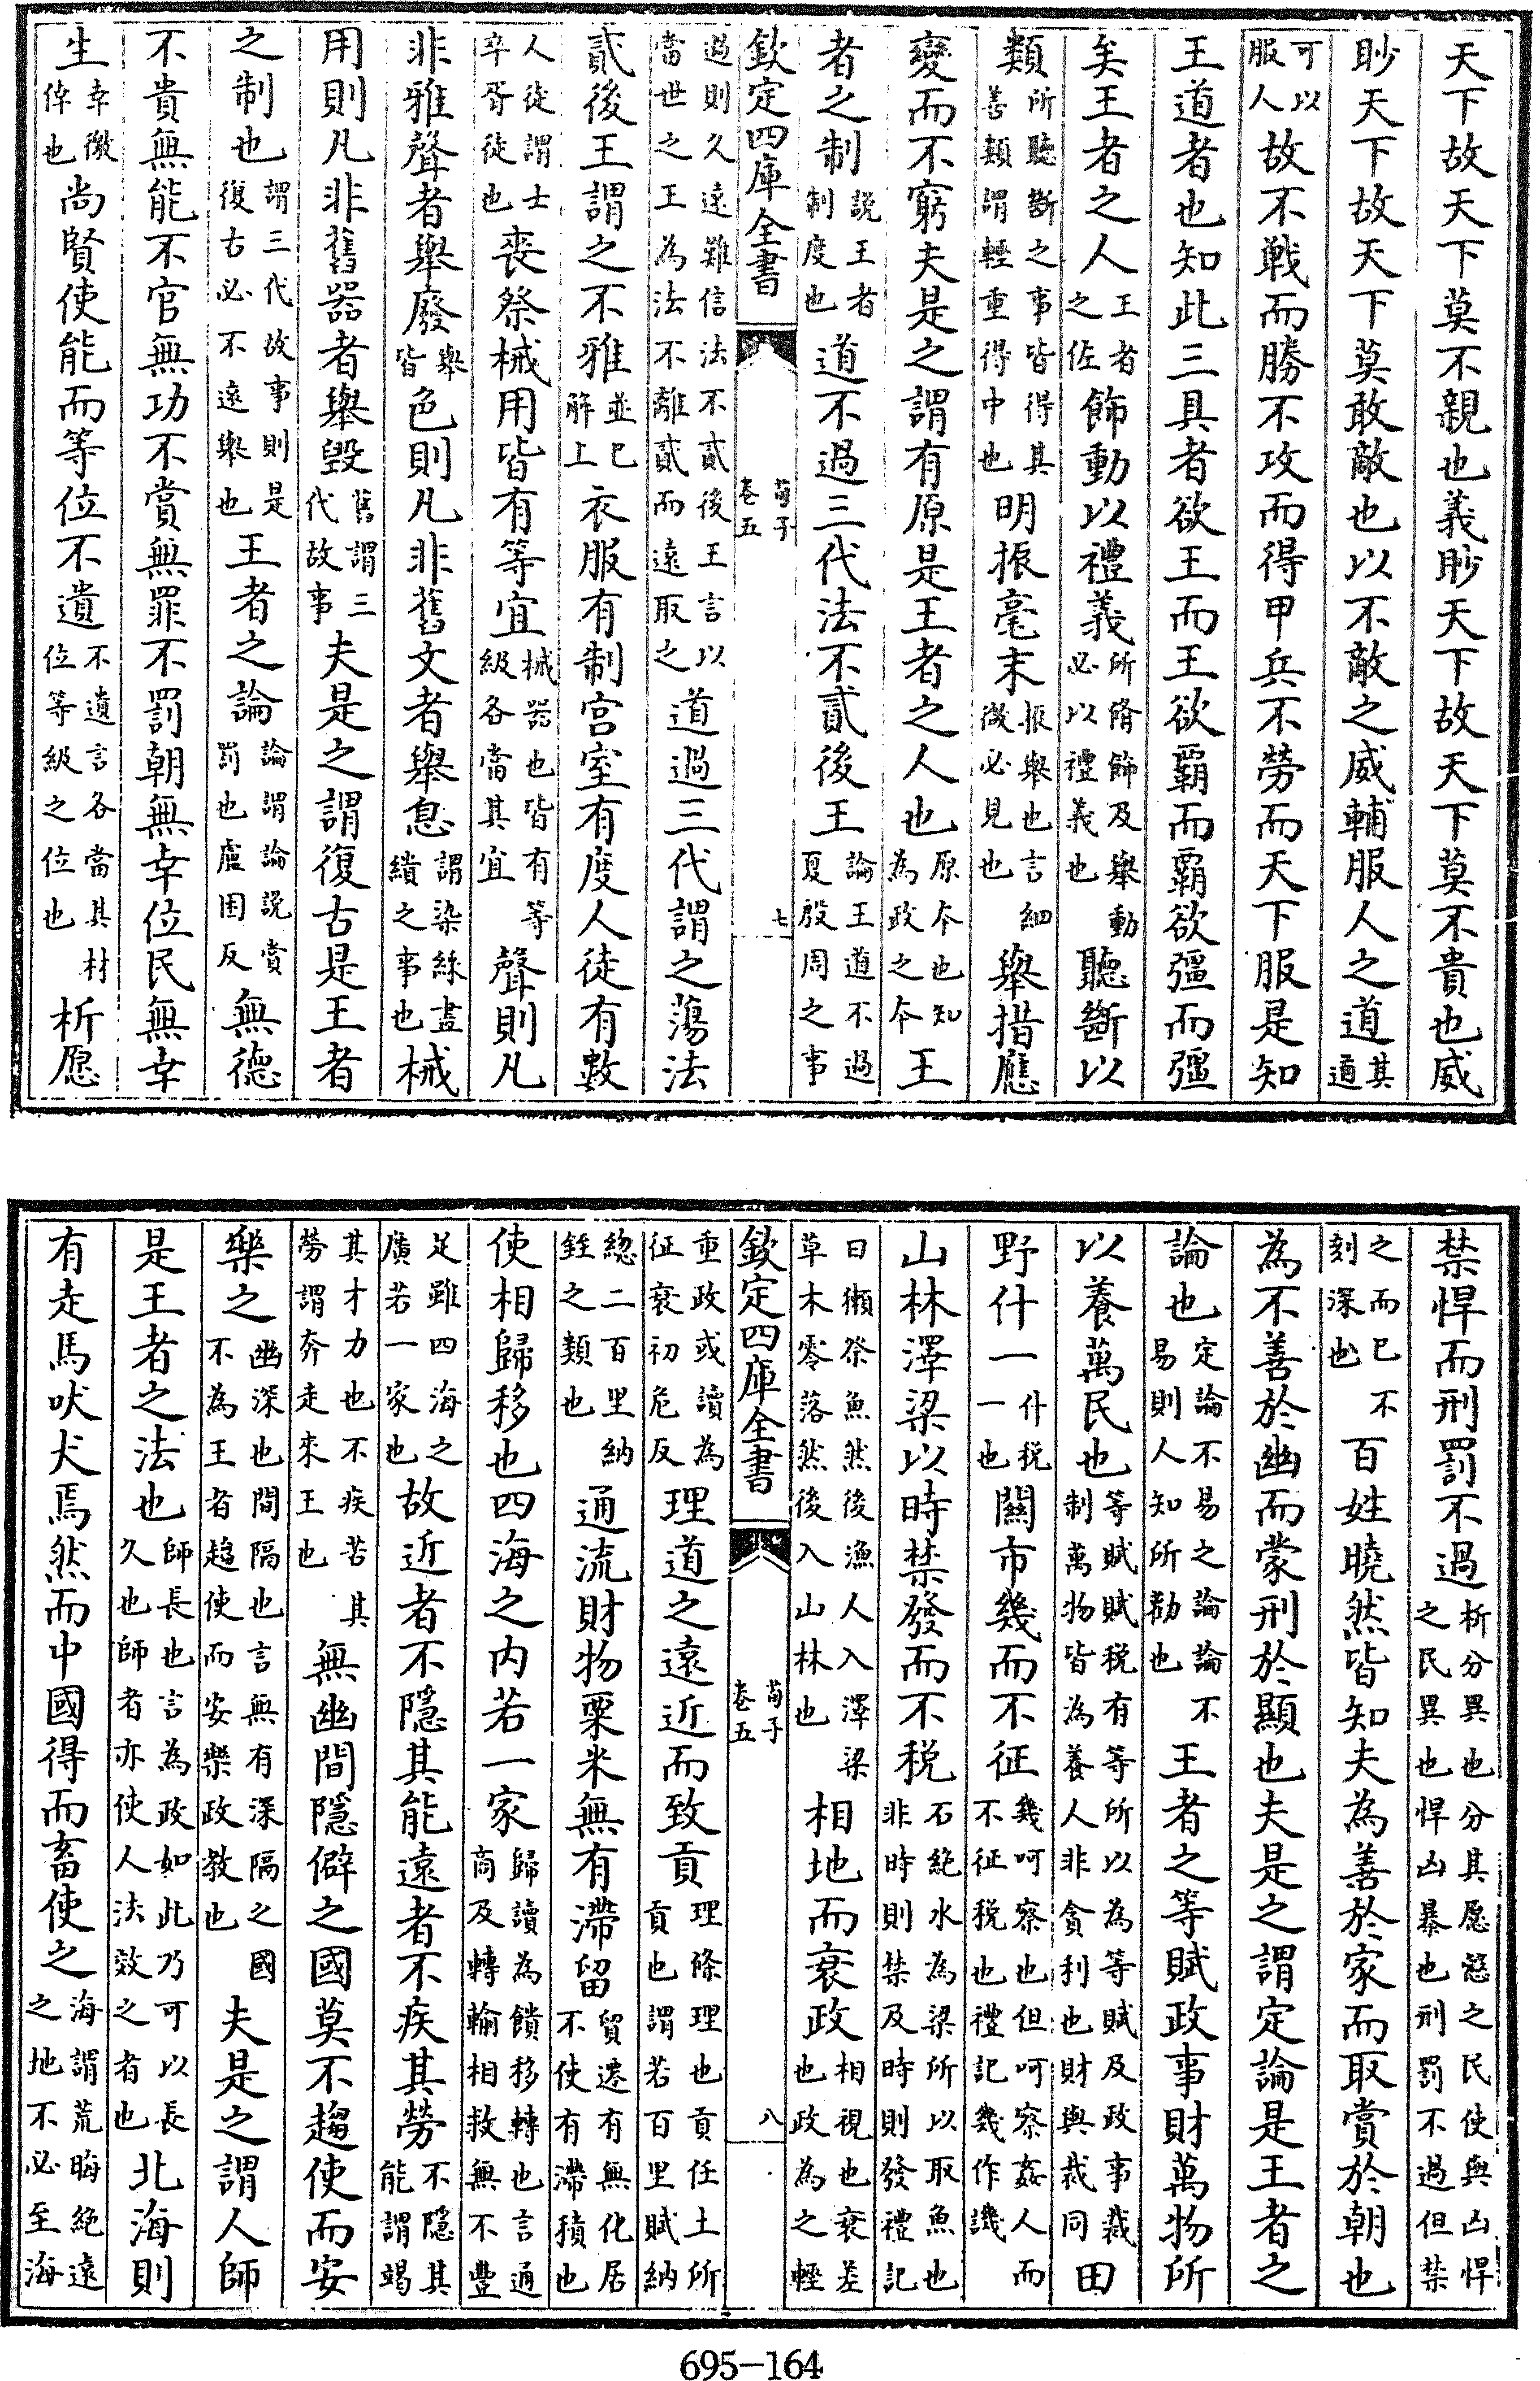 天下故天下莫不親也義眇天下故天下莫不貴也威
眇天下故天下莫敢敵也以不敵之威輔服人之道其道
可以服人故不戰而勝不攻而得甲兵不勞而天下服是知
王道者也知此三具者欲王而王欲霸而霸欲彊而彊
矣王者之人王者之佐飾動以禮義所脩飾及舉動必以禮義也聽斷以
類所聽斷之事皆得其善類謂輕重得中也明振毫末振舉也言細微必見也舉措應
變而不窮夫是之謂有原是王者之人也原本也知為政之本王
者之制說王者制度也道不過三代法不貳後王論王道不過夏殷周之事
過則久遠難信法不貳後王言以當世之王為法不離貳而遠取之道過三代謂之蕩法
貳後王謂之不雅並已解上衣服有制宮室有度人徒有數
人徒謂士卒胥徒也喪祭械用皆有等宜械器也皆有等級各當其宜聲則凡
非雅聲者舉廢舉皆色則凡非舊文者舉息謂染絲畫繢之事也械
用則凡非舊器者舉毀舊謂三代故事夫是之謂復古是王者
之制也謂三代故事則是復古必不遠舉也王者之論論謂論說賞罰也盧困反無德
不貴無能不官無功不賞無罪不罰朝無幸位民無幸
生幸徼倖也尚賢使能而等位不遺不遺言各當其材位等級之位也析愿
欽定四庫全書
荀子卷五
七
禁悍而刑罰不過析分異也分其愿慤之民使與凶悍之民異也悍凶暴也刑罰不過但禁
之而已不刻深也百姓曉然皆知夫為善於家而取賞於朝也
為不善於幽而蒙刑於顯也夫是之謂定論是王者之
論也定論不易之論論不易則人知所勸也王者之等賦政事財萬物所
以養萬民也等賦賦稅有等所以為等賦及政事裁制萬物皆為養人非貪利也財與裁同田
野什一什稅一也關市幾而不征幾呵察也但呵察姦人而不征稅也禮記幾作譏
山林澤梁以時禁發而不稅石絕水為梁所以取魚也非時則禁及時則發禮記
曰獺祭魚然後漁人入澤梁草木零落然後入山林也相地而衰政相視也衰差也政為之輕
重政或讀為征衰初危反理道之遠近而致貢理條理也貢任土所貢也謂若百里賦納
緫二百里納銍之類也通流財物粟米無有滯留貿遷有無化居不使有滯積也
使相歸移也四海之內若一家歸讀為饋移轉也言通商及轉輸相救無不豐
足雖四海之廣若一家也故近者不隱其能遠者不疾其勞不隱其能謂竭
其才力也不疾苦其勞謂奔走來王也無幽閒隱僻之國莫不趨使而安
樂之幽深也閒隔也言無有深隔之國不為王者趨使而安樂政教也夫是之謂人師
是王者之法也師長也言為政如此乃可以長久也師者亦使人法效之者也北海則
有走馬吠犬焉然而中國得而畜使之海謂荒晦絕遠之地不必至海
欽定四庫全書
荀子卷五
八
695-164